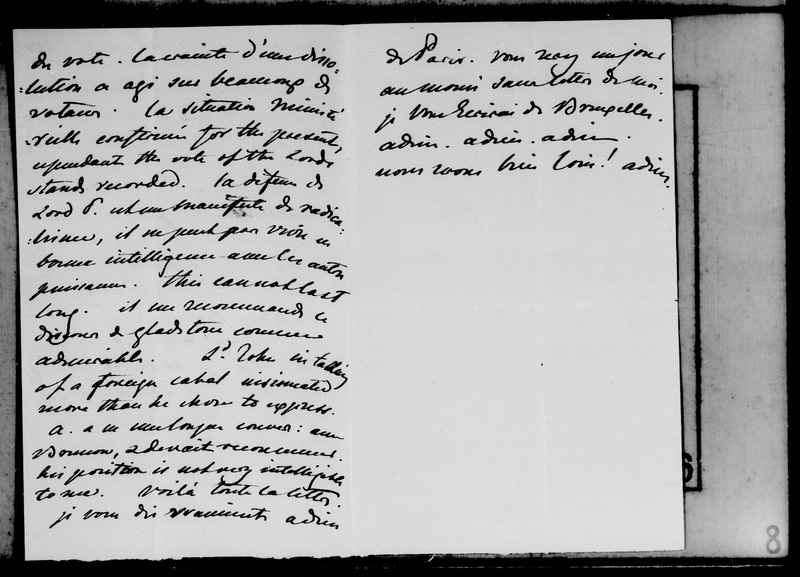 du vote. la crainte d'une disso-
:lution a agi sur beaucoup de
votans. la situation ministé
:rielle confirmée for the present,
cependant the vote of the Lords
stands recorded. la défense de
Lord P. est un manifeste de radica-
:lisme, il ne peut pas vivre en
bonne intelligence avec les autres
puissances. this can not last
long. il me recommande le
discours de gladstone comme
admirable. Ld John in talking
of a foreign cabal insinuated
more than he chose to express.
a. a eu une longue conver: avec
, & devait recommencer.
his position is not very intelligible
to me. voilà toute la lettre.
je vous dis vraiment adieu
de Paris. vous serez un jour
au moins sans lettre de moi.
je vous écrirai de Bruxelles.
adieu. adieu. adieu.
nous serons bien loin! adieu.
6
8